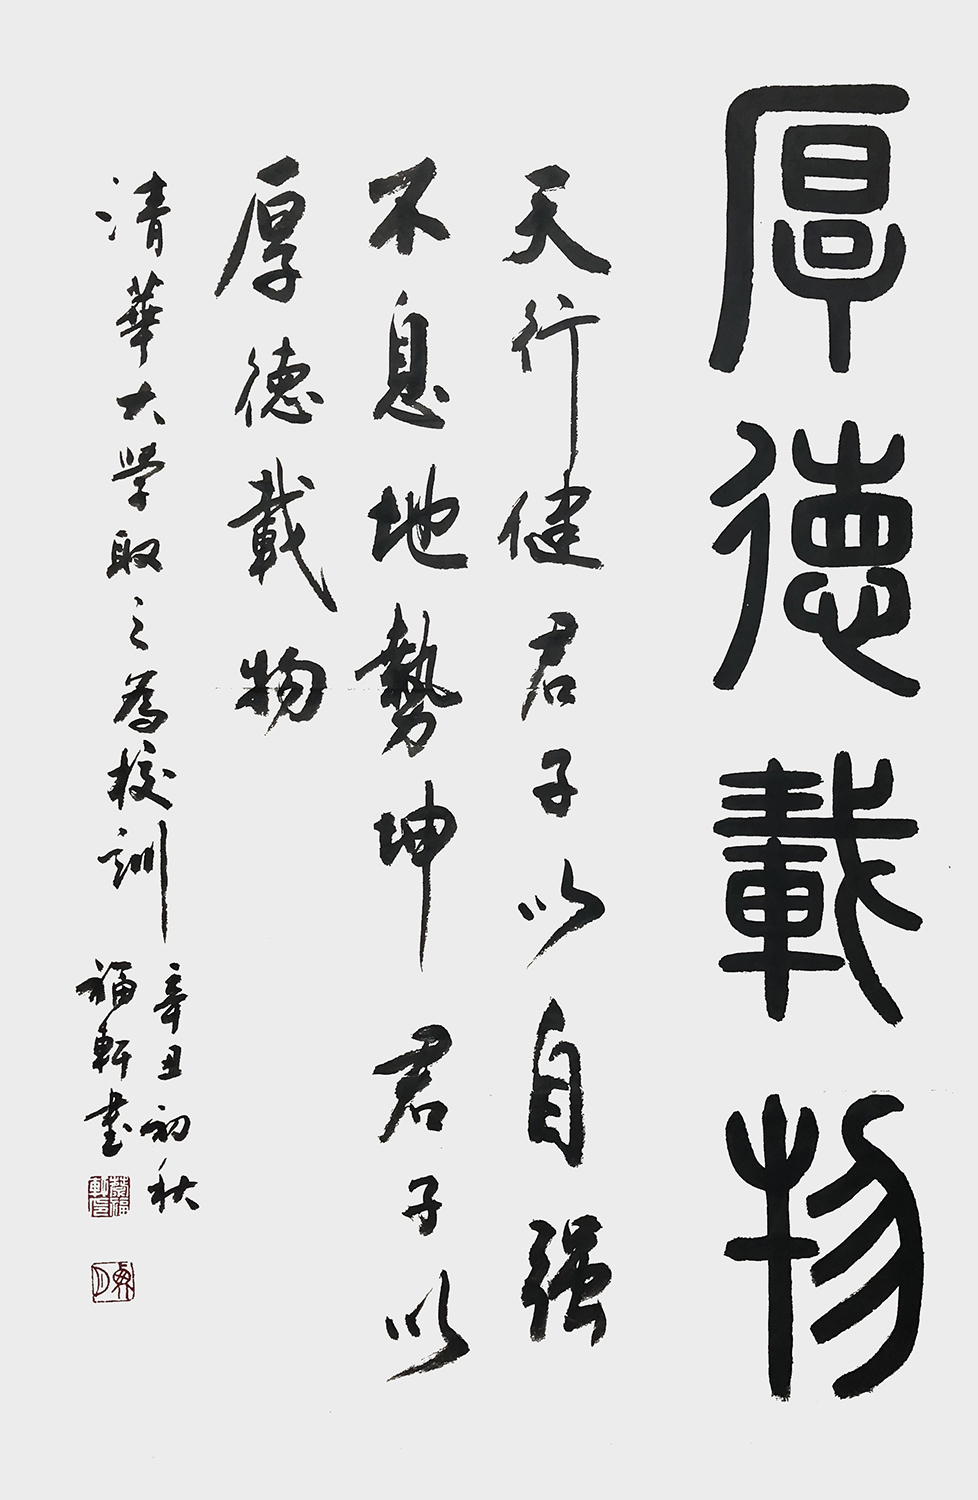 厚德載物
天行健君子以自强
不息地勢坤君子以
厚德載物
清華大學取之為校訓
辛丑初秋
福軒書